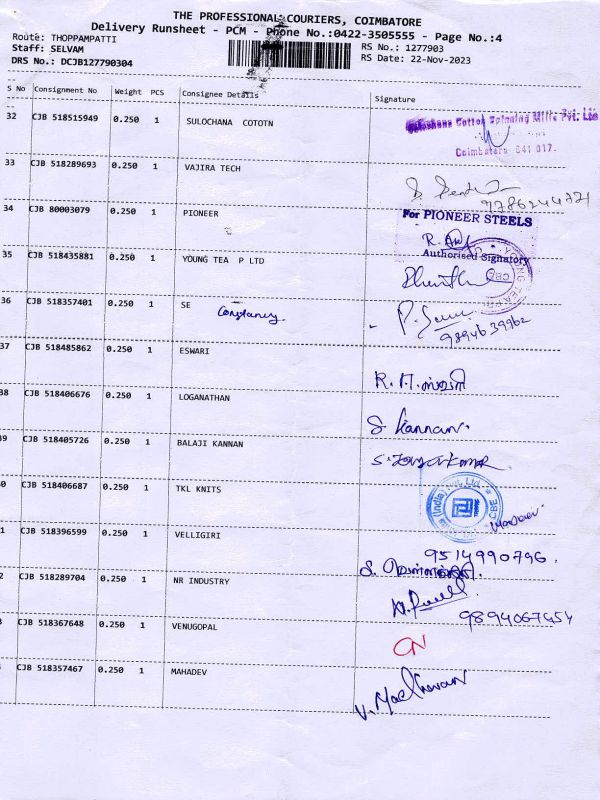 THE PROFESSIONAL COURIERS, COIMBATORE
Delivery Runsheet - PCM - Phone No.:0422-3505555 - Page No.:4
Route: THOPPAMPATTI RS No.: 1277903
Staff: SELVAM RS Date: 22-Nov-2023
DRS No.: DCJB127790304
S No Consignment No Weight PCS Consignee Details Signature
32 CJB 518515949 0.250 1 SULOCHANA COTOTN
Cotton Spinning Mills Pvt. Ltd
Coimbatore 641 017.
33 CJB 518289693 0.250 1 VAJIRA TECH
34 CJB 80003079 0.250 1 PIONEER
For PIONEER STEELS
Authorised Signatory
35 CJB 518435881 0.250 1 YOUNG TEA P LTD
CBE
36 CJB 518357401 0.250 1 SE
9894639962
37 CJB 518485862 0.250 1 ESWARI
38 CJB 518406676 0.250 1 LOGANATHAN
S. Kannan.
39 CJB 518405726 0.250 1 BALAJI KANNAN
0 CJB 518406687 0.250 1 TKL KNITS
India Pvt. Ltd. CBE
1 CJB 518396599 0.250 1 VELLIGIRI
9514990796.
2 CJB 518289704 0.250 1 NR INDUSTRY
3 CJB 518367648 0.250 1 VENUGOPAL
CN
CJB 518357467 0.250 1 MAHADEV
V. Madhavan